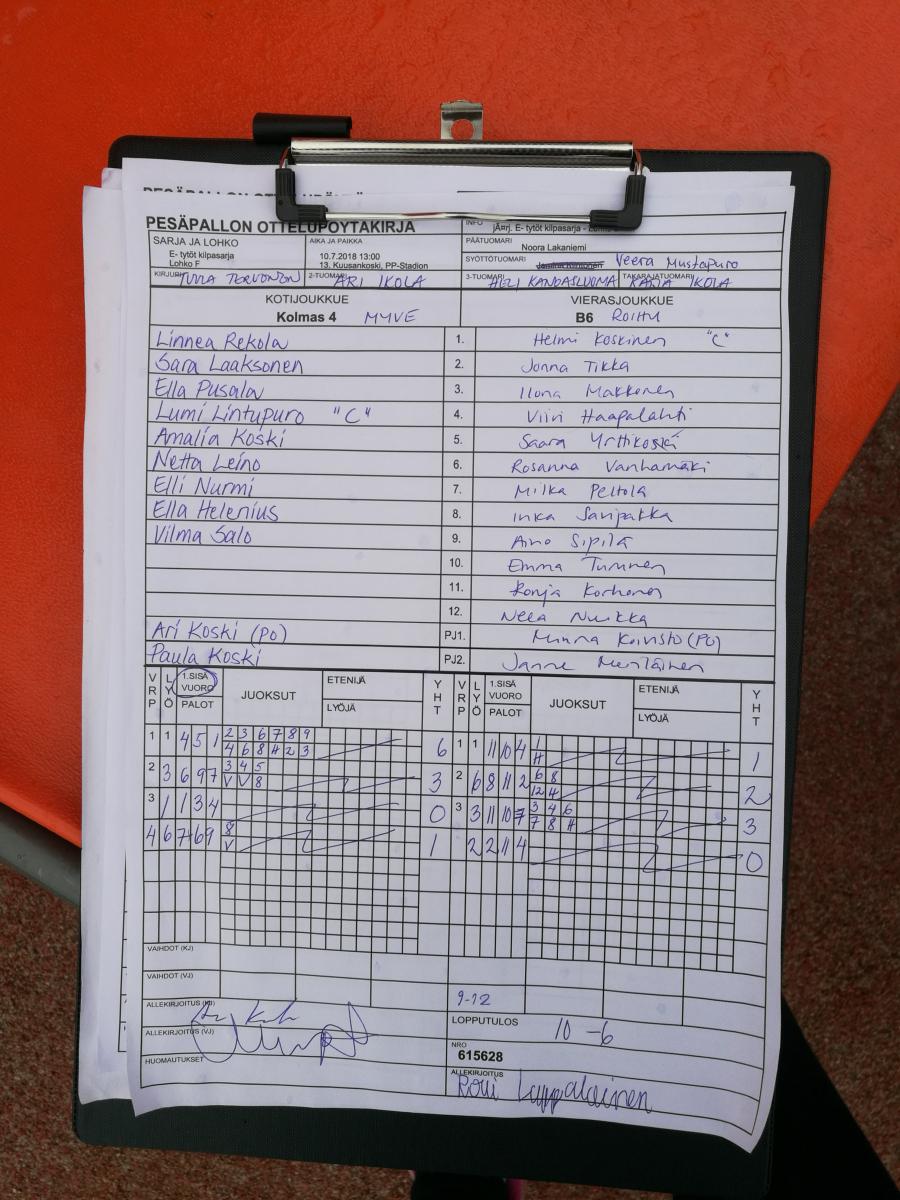 PESÄPALLON OTTELUPÖYTÄKIRJA
INFO
E- tytöt kilpasarja -
SARJA JA LOHKO
E- tytöt kilpasarja
Lohko F
AIKA JA PAIKKA
10.7.2018 13:00
13. Kuusankoski, PP-Stadion
PÄÄTUOMARI
Noora Lakaniemi
SYÖTTÖTUOMARI
Veera Mustapuro
KIRJURI TUULA TERVONEN
2-TUOMARI ARI IKOLA
3-TUOMARI HELI KANGASLUOMA
TAKARAJATUOMARI KAIJA IKOLA
KOTIJOUKKUE
Kolmas 4 MYVE
VIERASJOUKKUE
B6 ROIHU
Linnea Rekola 1. Helmi Koskinen "C"
Sara Laaksonen 2. Jonna Tikka
Ella Pusala 3. Ilona Makkonen
Lumi Lintupuro "C" 4. Viivi Haapalahti
Amalia Koski 5. Saara Yrttikoski
Netta Leino 6. Rosanna Vanhamäki
Elli Nurmi 7. Milka Peltola
Ella Helenius 8. Inka Saripakka
Vilma Salo 9. Aino Sipilä
10. Emma Tuminen
11. Ronja Korhonen
12. Neea Nuikka
Ari Koski (PO) PJ1. Minna Koivisto (PO)
Paula Koski PJ2. Janne Meriläinen
VRP LYÖ 1.SISÄ VUORO PALOT JUOKSUT ETENIJÄ LYÖJÄ YHT VRP LYÖ 1.SISÄ VUORO PALOT JUOKSUT ETENIJÄ LYÖJÄ YHT
1 1 4 5 1 2 3 6 7 8 9 6 1 1 11 10 4 1 1
4 6 8 H 2 3 H
2 3 6 9 7 3 4 5 3 2 6 8 11 2 6 8 2
V V 8 12 H
3 1 1 3 4 0 3 3 11 10 7 3 4 6 3
7 8 H
4 6 7 6 9 8 1 2 2 11 4 0
V
VAIHDOT (KJ)
VAIHDOT (VJ)
ALLEKIRJOITUS (KJ)
9-12
LOPPUTULOS 10 -6
ALLEKIRJOITUS (VJ)
NRO
615628
HUOMAUTUKSET
ALLEKIRJOITUS
Roni Lappalainen